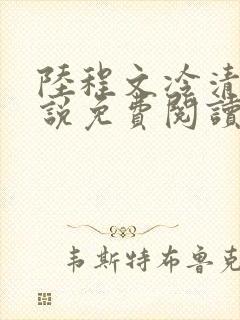 陸程文冷清
說免費閱讀
韦斯特布鲁克